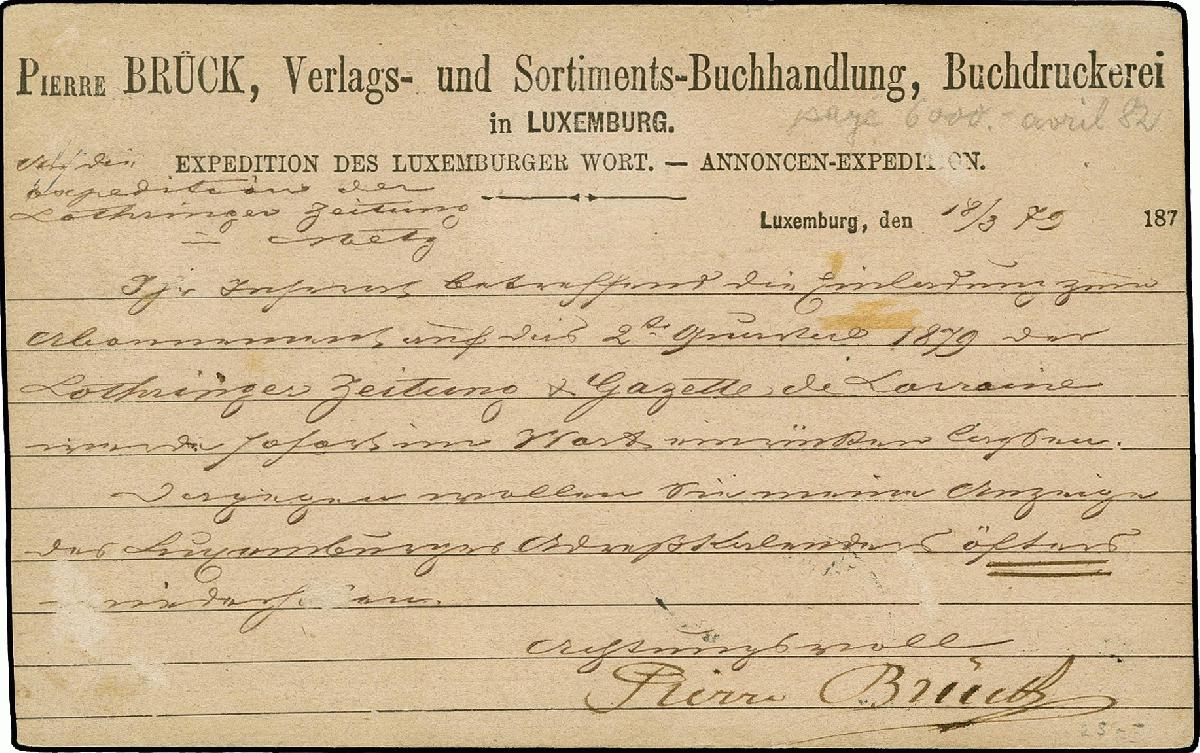 PIERRE BRÜCK, Verlags- und Sortiments-Buchhandlung, Buchdruckerei
in LUXEMBURG.
payé 6000. - avril 82
EXPEDITION DES LUXEMBURGER WORT. — ANNONCEN-EXPEDITION.
An die
Expedition der
Lothringer Zeitung
in Metz
Luxemburg, den 18/3 79 187
Ihr Inserat betreffend die Einladung zum
Abonnement auf das 2te Quartal 1879 der
Lothringer Zeitung & Gazette de Lorraine
werde sofort im Wort einrücken lassen.
Dagegen wollen Sie meine Anzeige
des Luxemburger Adreßkalenders öfters
wiederholen.
Achtungsvoll
Pierre Brück